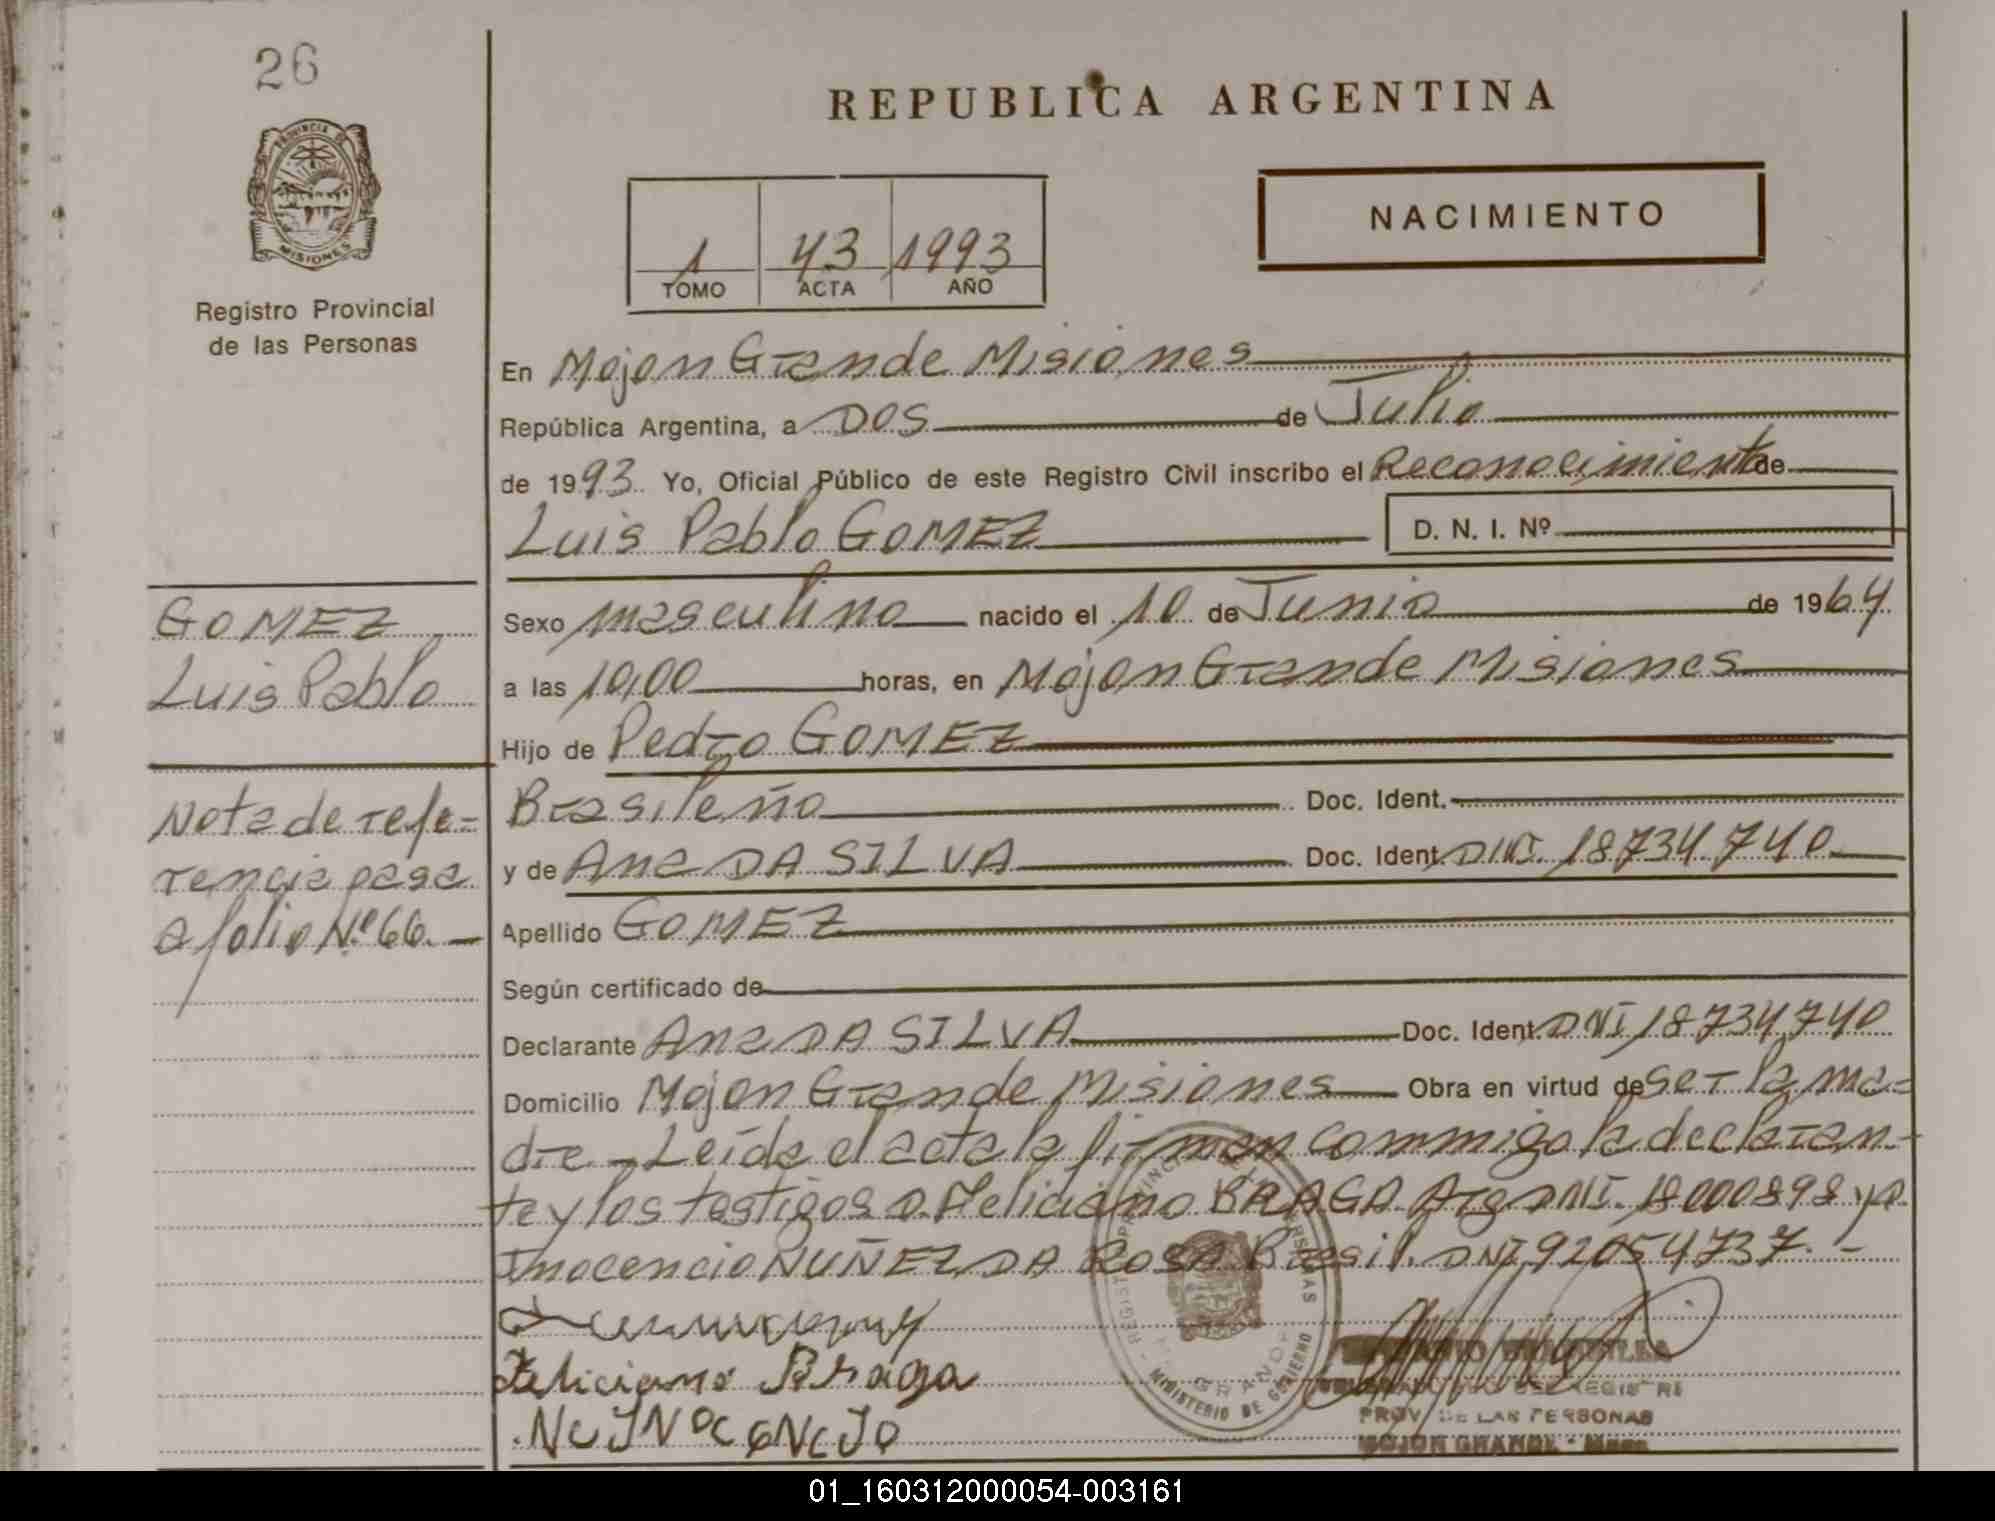 26
REPUBLICA ARGENTINA
PROVINCIA DE
MISIONES
NACIMIENTO
1 43 1993
TOMO ACTA AÑO
Registro Provincial
de las Personas
En Mojon Grande Misiones
República Argentina, a DOS de Julio
de 1993. Yo, Oficial Público de este Registro Civil inscribo el Reconocimiento de
Luis Pablo GOMEZ D. N. I. Nº
GOMEZ
Luis Pablo
Sexo masculino nacido el 10 de Junio de 1964
a las 10,00 horas, en Mojon Grande Misiones
Hijo de Pedro GOMEZ
Brasileño Doc. Ident.
y de Ana DA SILVA Doc. Ident. DNI. 18734.740
Nota de refe=
rencia pasa
a folio Nº 66.
Apellido GOMEZ
Según certificado de
Declarante Ana DA SILVA Doc. Ident. DNI 18734740
Domicilio Mojon Grande Misiones Obra en virtud de ser la ma=
dre.- Leída el acta la firman commigo la declaran-
te y los testigos D. Feliciano BRAGA Arg DNI. 18000898 y D.
Inocencio NUÑEZ DA ROSA Brasil. DNI 92054737.-
Feliciano Braga
NUJNOCENCJO
MINISTERIO DE GOBIERNO
DEL REGISTRO
PROV. DE LAS PERSONAS
MOJON GRANDE - Mnes
01_160312000054-003161